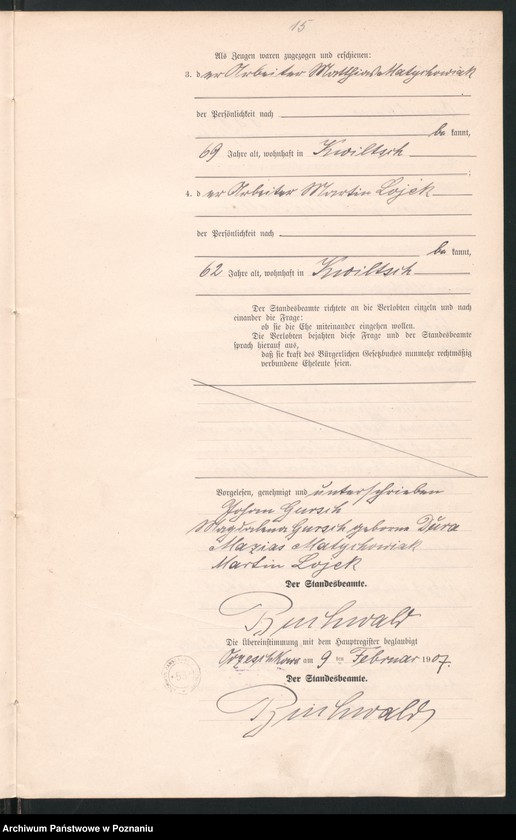 15
Als Zeugen waren zugezogen und erschienen:
3. d.er Arbeiter Matthias Matychowiak
der Persönlichkeit nach
be kannt,
69 Jahre alt, wohnhaft in Kwiltsch
;
4. d er Arbeiter Martin Lojek
der Persönlichkeit nach
be kannt,
62 Jahre alt, wohnhaft in Kwiltsch
Der Standesbeamte richtete an die Verlobten einzeln und nach
einander die Frage:
ob sie die Ehe miteinander eingehen wollen.
Die Verlobten bejahten diese Frage und der Standesbeamte
sprach hierauf aus,
daß sie kraft des Bürgerlichen Gesetzbuches nunmehr rechtmäßig
verbundene Eheleute seien.
Vorgelesen, genehmigt und unterschrieben
Johan Gursch
Magdalena Gursch geborne Dura
Mazias Matychowiak
Martin Lojek
Der Standesbeamte.
Buchwald
Die Übereinstimmung mit dem Hauptregister beglaubigt
Orzeschkowo am 9 ten Februar 1907.
Der Standesbeamte.
Buchwald
Archiwum Państwowe w Poznaniu